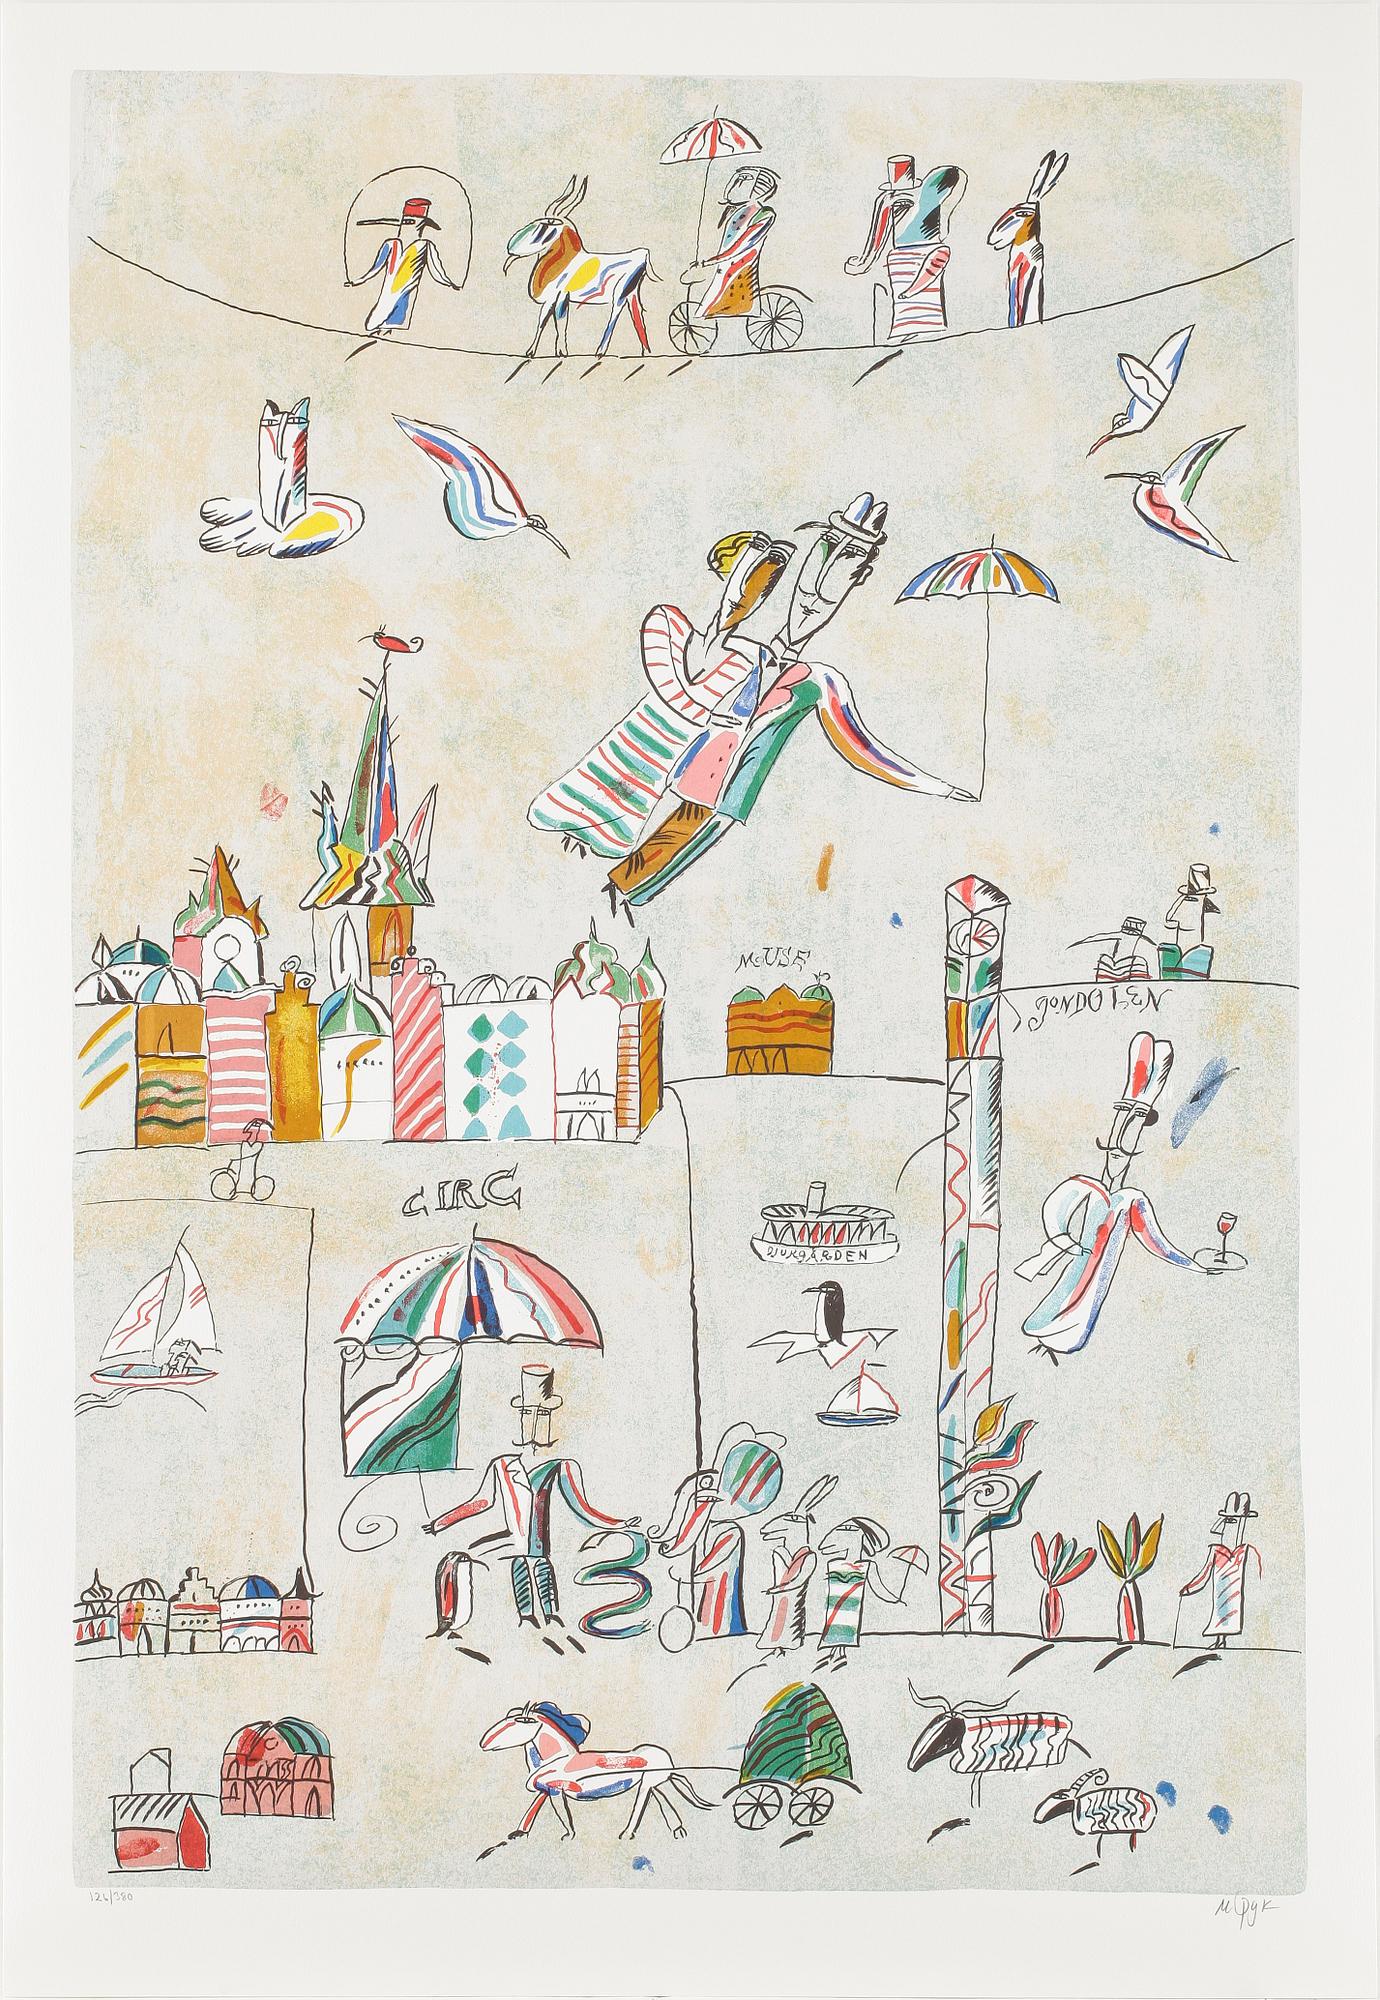 McUSE
GONDOLEN
CIRC
DJURGÅRDEN
126/380